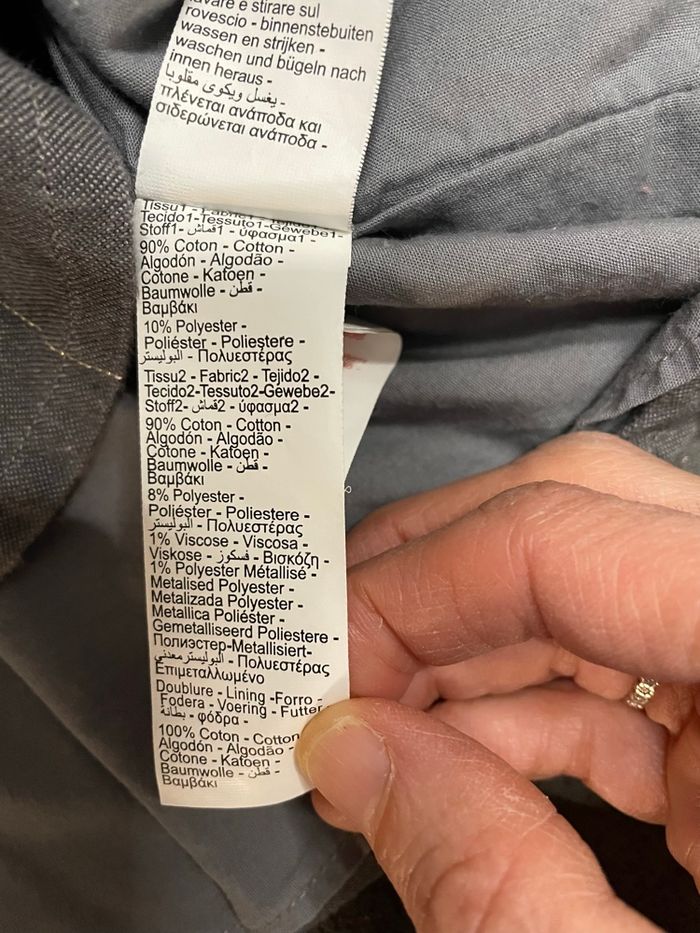 lavare e stirare sul
rovescio - binnenstebuiten
wassen en strijken -
waschen und bügeln nach
innen heraus -
يغسل ويكوى مقلوبا -
πλένεται ανάποδα και
σιδερώνεται ανάποδα -
Tissu1 - Fabric1 - Tejido1 -
Tecido1-Tessuto1-Gewebe1-
Stoff1- قماش1 - ύφασμα1 -
90% Coton - Cotton -
Algodón - Algodão -
Cotone - Katoen -
Baumwolle - قطن -
Βαμβάκι
10% Polyester -
Poliéster - Poliestere -
البوليستر - Πολυεστέρας
Tissu2 - Fabric2 - Tejido2 -
Tecido2-Tessuto2-Gewebe2-
Stoff2- قماش2 - ύφασμα2 -
90% Coton - Cotton -
Algodón - Algodão -
Cotone - Katoen -
Baumwolle - قطن -
Βαμβάκι
8% Polyester -
Poliéster - Poliestere -
البوليستر - Πολυεστέρας
1% Viscose - Viscosa -
Viskose - فسكوز - Βισκόζη -
1% Polyester Métallisé -
Metalised Polyester -
Metalizada Polyester -
Metallica Poliéster -
Gemetalliseerd Poliestere -
Полиэстер-Metallisiert-
البوليستر معدني - Πολυεστέρας
Επιμεταλλωμένο
Doublure - Lining -Forro -
Fodera - Voering - Futter
بطانة - φόδρα -
100% Coton - Cotton
Algodón - Algodão -
Cotone - Katoen -
Baumwolle - قطن -
Βαμβάκι